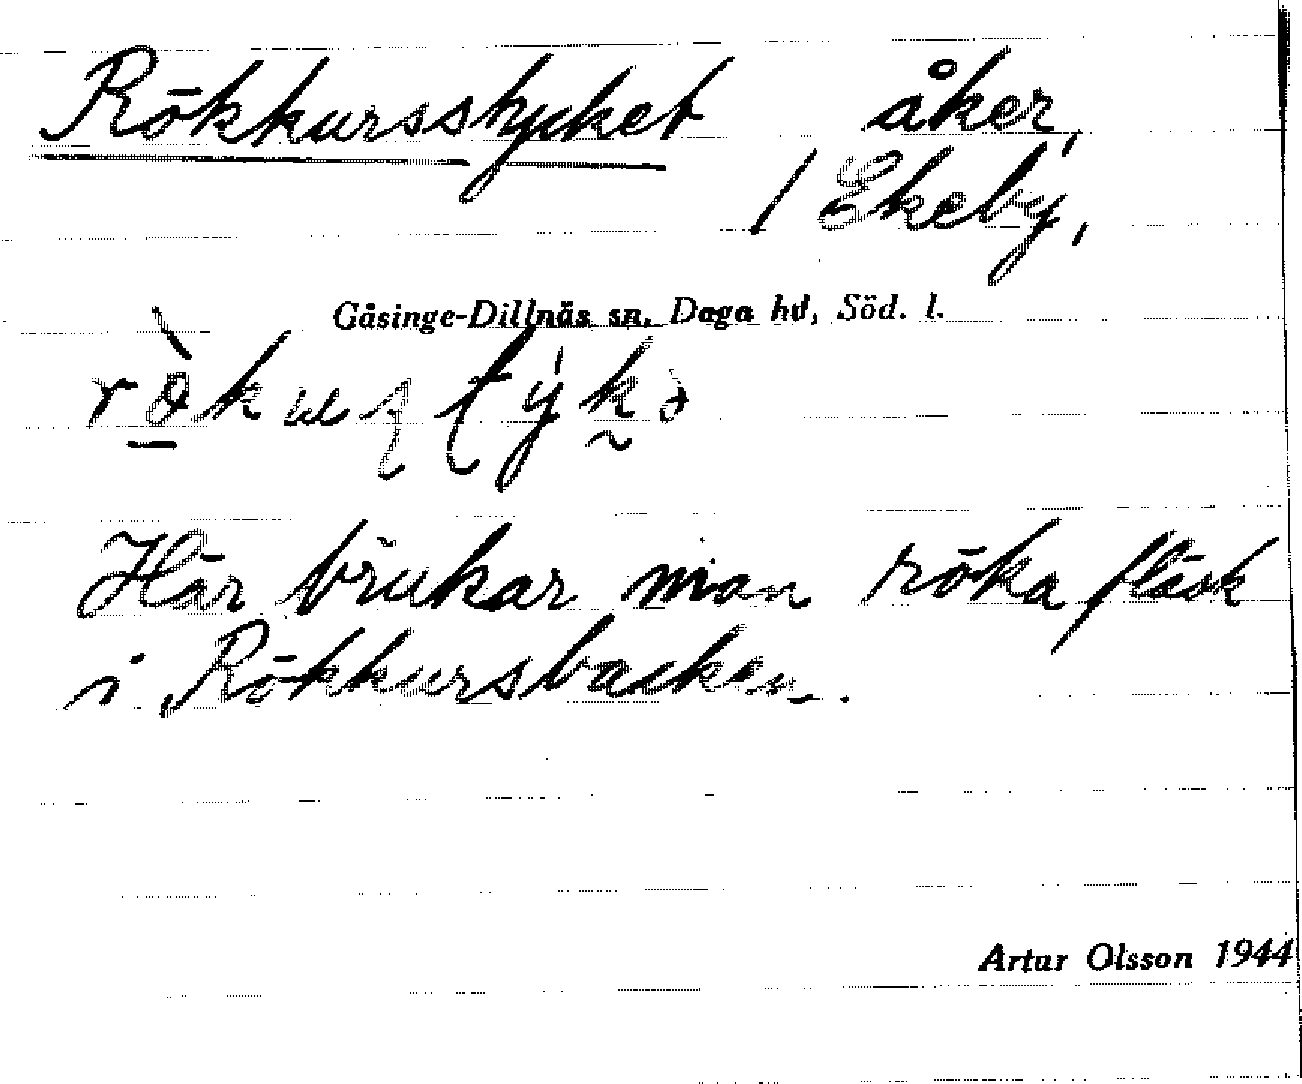 Rökkursstycket åker,
/ Ekeby,
Gåsinge-Dillnäs sn, Daga hd, Söd. l.
Här brukar man röka fläsk
i Rökkursbacken.
Artur Olsson 1944